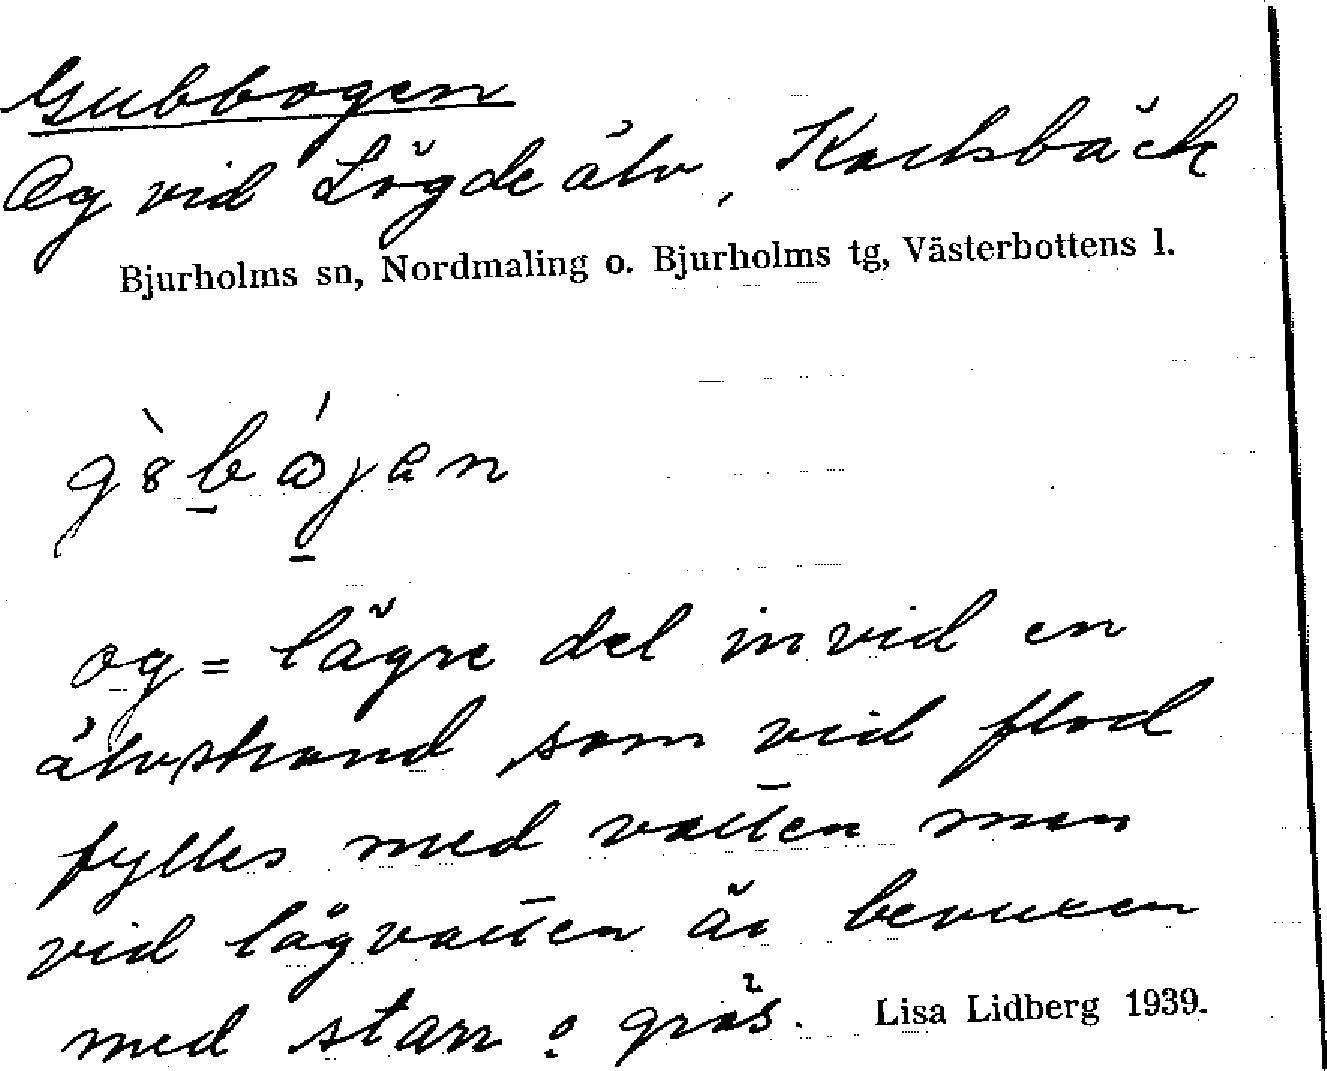 Gubbogen
Og vid Lögde älv, Karlsbäck
Bjurholms sn, Nordmaling o. Bjurholms tg, Västerbottens l.
og = lägre del invid en
älvstrand, som vid flod
fylles med vatten men
vid lågvatten är bevuxen
med starr o gräs. Lisa Lidberg 1939.